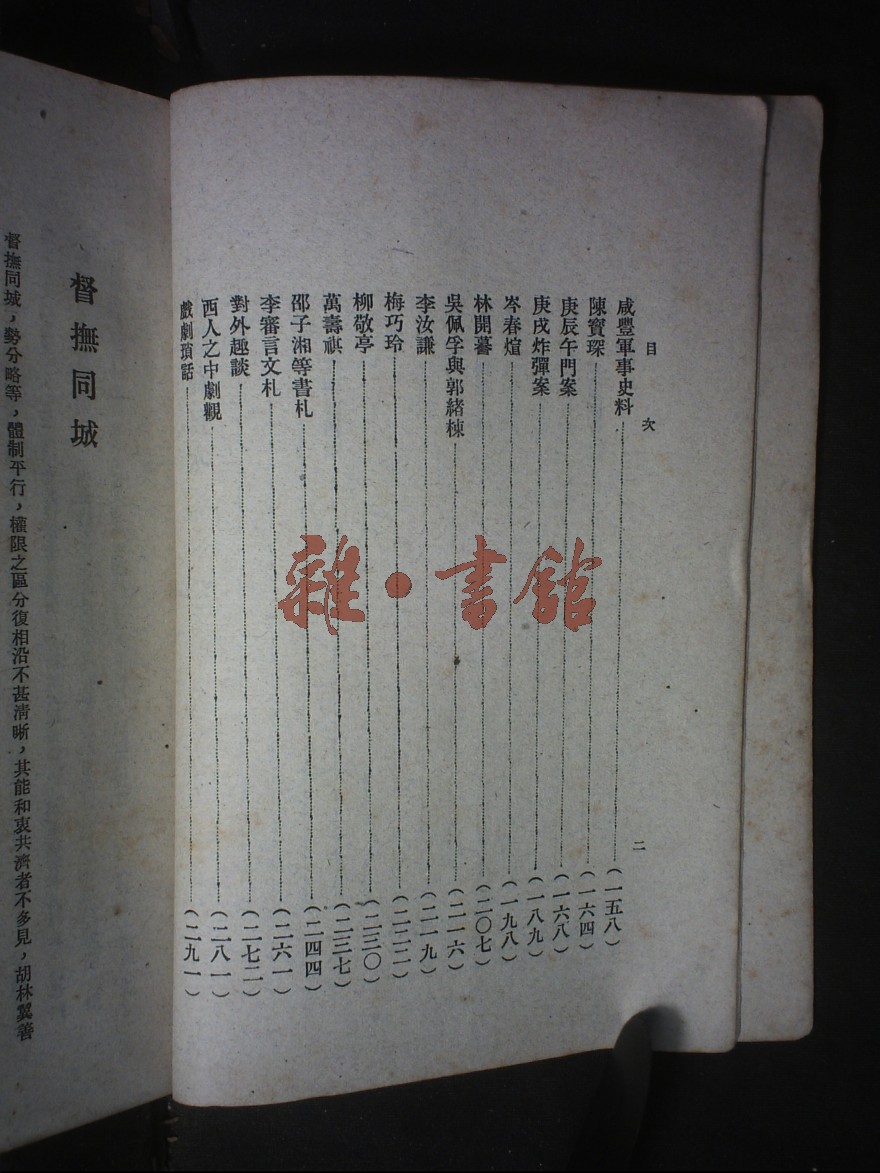 目次
二
咸豐軍事史料(一五八)
陳寳琛(一六四)
庚辰午門案(一六八)
庚戌炸彈案(一八九)
岑春煊(一九八)
林開謩(二〇七)
吳佩孚與郭緒棟(二一六)
李汝謙(二一九)
梅巧玲(二二二)
柳敬亭(二三〇)
萬壽祺(二三七)
邵子湘等書札(二四四)
李審言文札(二六一)
對外趣談(二七二)
西人之中劇觀(二八一)
戲劇瑣話(二九一)
雜·書館
督撫同城
督撫同城,勢分略等,體制平行,權限之區分復相沿不甚清晰,其能和衷共濟者不多見,胡林翼善